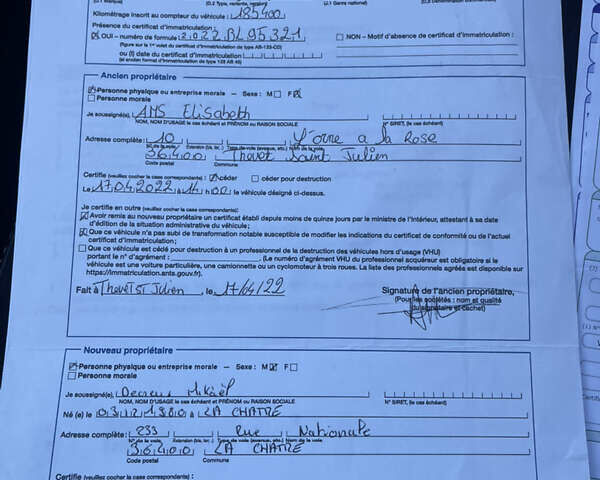 (D.2) Type, variante, version)
(J.1) Genre national)
Kilométrage inscrit au compteur du véhicule : 185400
Présence du certificat d'immatriculation :
OUI – numéro de formule : 2022BL95321
NON – Motif d'absence de certificat d'immatriculation :
(figure sur le 1er volet du certificat d'immatriculation de type AB-123-CD)
ou (I) date du certificat d'immatriculation
(si ancien format d'immatriculation de type 123 AB 45)
Ancien propriétaire
Personne physique ou entreprise morale – Sexe : M F
Personne morale
Je soussigné(e), AMS Elisabeth
NOM, NOM D'USAGE le cas échéant et PRÉNOM ou RAISON SOCIALE
N° SIRET, (le cas échéant)
Adresse complète : 10 L'orme a la Rose
N° de la voie Extension (bis, ter, ) Type de voie (avenue, etc.) Nom de la voie
36400 Thevet Saint Julien
Code postal Commune
Certifie (veuillez cocher la case correspondante) : céder céder pour destruction
Le 17.04.2022 à 14 h 00 le véhicule désigné ci-dessus.
Je certifie en outre (veuillez cocher la case correspondante) :
Avoir remis au nouveau propriétaire un certificat établi depuis moins de quinze jours par le ministre de l'Intérieur, attestant à sa date
d'édition de la situation administrative du véhicule ;
Que ce véhicule n'a pas subi de transformation notable susceptible de modifier les indications du certificat de conformité ou de l'actuel
certificat d'immatriculation ;
Que ce véhicule est cédé pour destruction à un professionnel de la destruction des véhicules hors d'usage (VHU)
portant le n° d'agrément : (Le numéro d'agrément VHU du professionnel acquéreur est obligatoire si le
véhicule est une voiture particulière, une camionnette ou un cyclomoteur à trois roues. La liste des professionnels agréés est disponible sur
https://immatriculation.ants.gouv.fr).
Fait à Thevet St Julien , le 17/04/22
Signature de l'ancien propriétaire,
(Pour les sociétés : nom et qualité
du signataire et cachet)
Nouveau propriétaire
Personne physique ou entreprise morale – Sexe : M F
Personne morale
Je soussigné(e) Mikaël
NOM, NOM D'USAGE le cas échéant et PRÉNOM ou RAISON SOCIALE
N° SIRET, (le cas échéant)
Né (e) le 03121980 à LA CHATRE
Adresse complète : 233 Rue Nationale
N° de la voie Extension (bis, ter, ) Type de voie (avenue, etc.) Nom de la voie
36400 LA CHATRE
Code postal Commune
Certifie (veuillez cocher la case correspondante) :